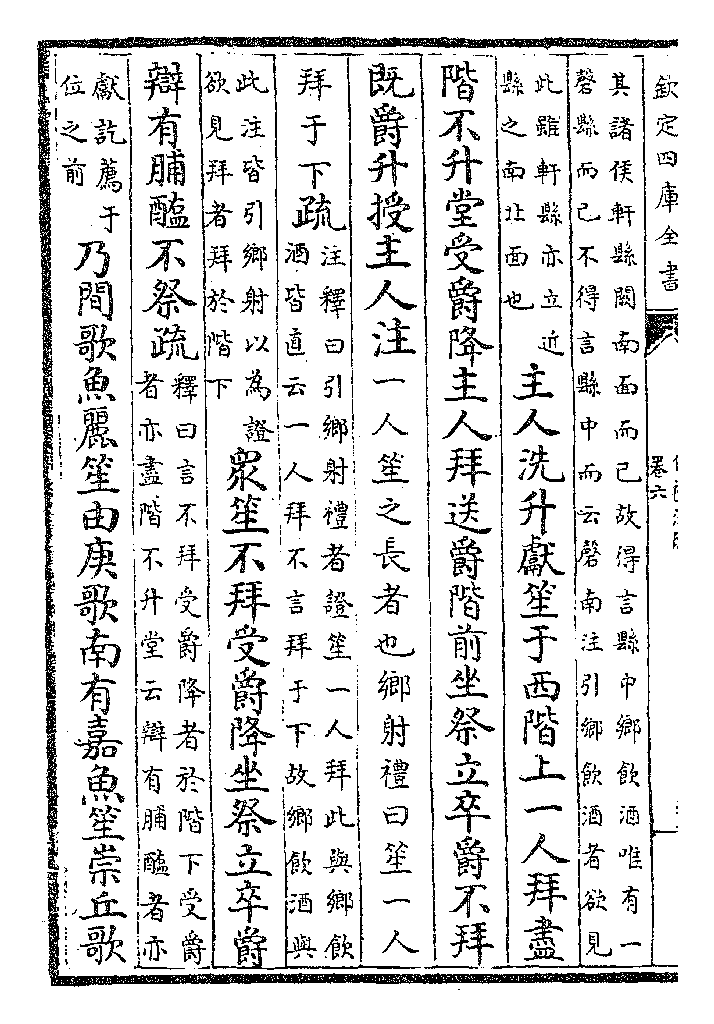 欽定四庫全書
卷六
其諸侯軒縣闕南面而已故得言縣中鄉飲酒唯有一
磬縣而已不得言縣中而云磬南注引鄉飲酒者欲見
此雖軒縣亦立近
縣之南北面也
主人洗升獻笙于西階上一人拜盡
階不升堂受爵降主人拜送爵階前坐祭立卒爵不拜
既爵升授主人注一人笙之長者也鄉射禮曰笙一人
拜于下疏
注釋曰引鄉射禮者證笙一人拜此與鄉飲
酒皆直云一人拜不言拜于下故鄉飲酒與
此注皆引鄉射以為證
欲見拜者拜於階下
眾笙不拜受爵降坐祭立卒爵
辯有脯醢不祭疏
釋曰言不拜受爵降者於階下受爵
者亦盡階不升堂云辯有脯醢者亦
獻訖薦于
位之前
乃間歌魚麗笙由庚歌南有嘉魚笙崇丘歌